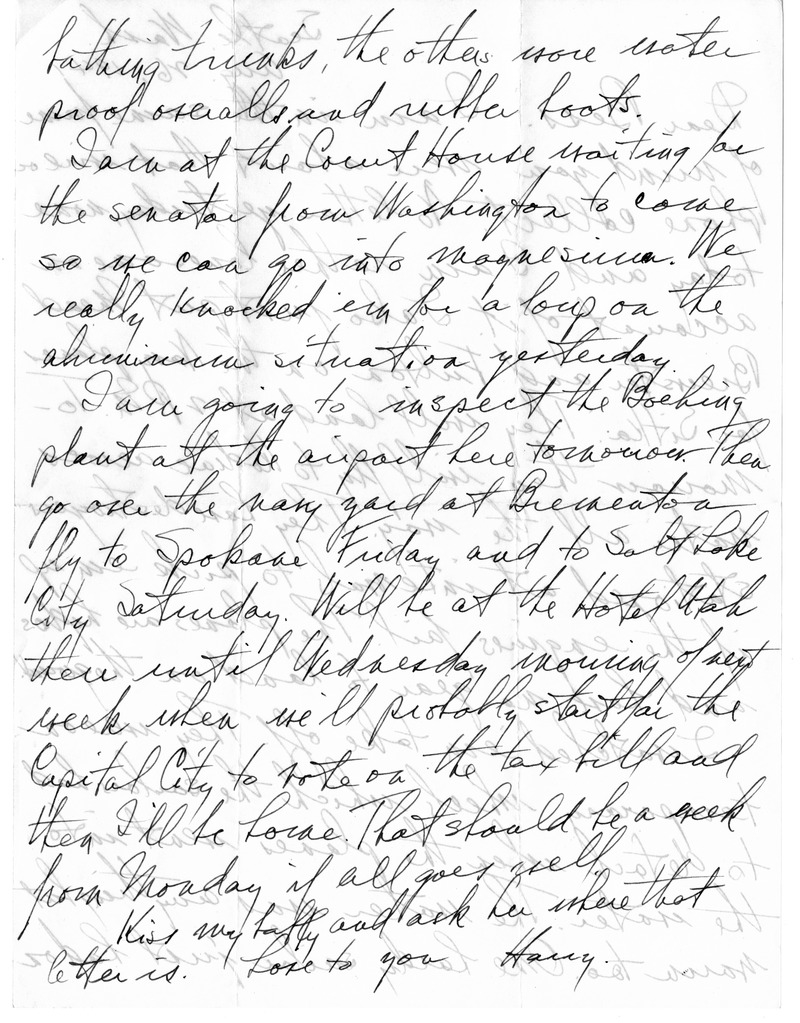 bathing trunks, the others wore water
proof overalls and rubber boots.
I am at the Court House waiting for
the senator from Washington to come
so we can go into magnesium. We
really knocked em for a loop on the
aluminum situation yesterday.
I am going to inspect the Boehing
plant at the airport here tomorrow. Then
go over the navy yard at Bremerton
fly to Spokane Friday and to Salt Lake
City Saturday. Will be at the Hotel Utah
there until Wednesday morning of next
week when we'll probably start for the
Capital City to vote on the tax bill and
then I'll be home. That should be a week
from Monday if all goes well.
Kiss my baby and ask her where that
letter is. Love to you Harry.